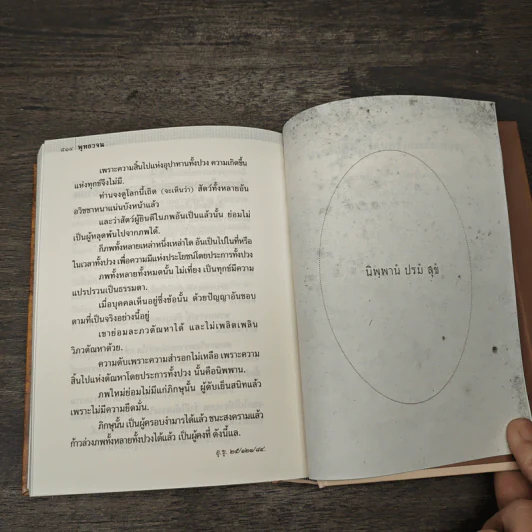 ๕๑๔ พุทธวจน
เพราะความสิ้นไปแห่งอุปาทานทั้งปวง ความเกิดขึ้น
แห่งทุกข์จึงไม่มี.
ท่านจงดูโลกนี้เถิด (จะเห็นว่า) สัตว์ทั้งหลายอัน
อวิชชาหนาแน่นบังหน้าแล้ว
และว่าสัตว์ผู้ยินดีในภพอันเป็นแล้วนั้น ย่อมไม่
เป็นผู้หลุดพ้นไปจากภพได้.
ก็ภพทั้งหลายเหล่าหนึ่งเหล่าใด อันเป็นไปในที่หรือ
ในเวลาทั้งปวง เพื่อความมีแห่งประโยชน์โดยประการทั้งปวง
ภพทั้งหลายทั้งหมดนั้น ไม่เที่ยง เป็นทุกข์มีความ
แปรปรวนเป็นธรรมดา.
เมื่อบุคคลเห็นอยู่ซึ่งข้อนั้น ด้วยปัญญาอันชอบ
ตามที่เป็นจริงอย่างนี้อยู่
เขาย่อมละภวตัณหาได้ และไม่เพลิดเพลิน
วิภวตัณหาด้วย.
ความดับเพราะความสำรอกไม่เหลือ เพราะความ
สิ้นไปแห่งตัณหาโดยประการทั้งปวง นั้นคือนิพพาน.
ภพใหม่ย่อมไม่มีแก่ภิกษุนั้น ผู้ดับเย็นสนิทแล้ว
เพราะไม่มีความยึดมั่น.
ภิกษุนั้น เป็นผู้ครอบงำมารได้แล้ว ชนะสงครามแล้ว
ก้าวล่วงภพทั้งหลายทั้งปวงได้แล้ว เป็นผู้คงที่ ดังนี้แล.
อุ. ขุ. ๒๕/๑๒๑/๘๔.
นิพฺพานํ ปรมํ สุขํ